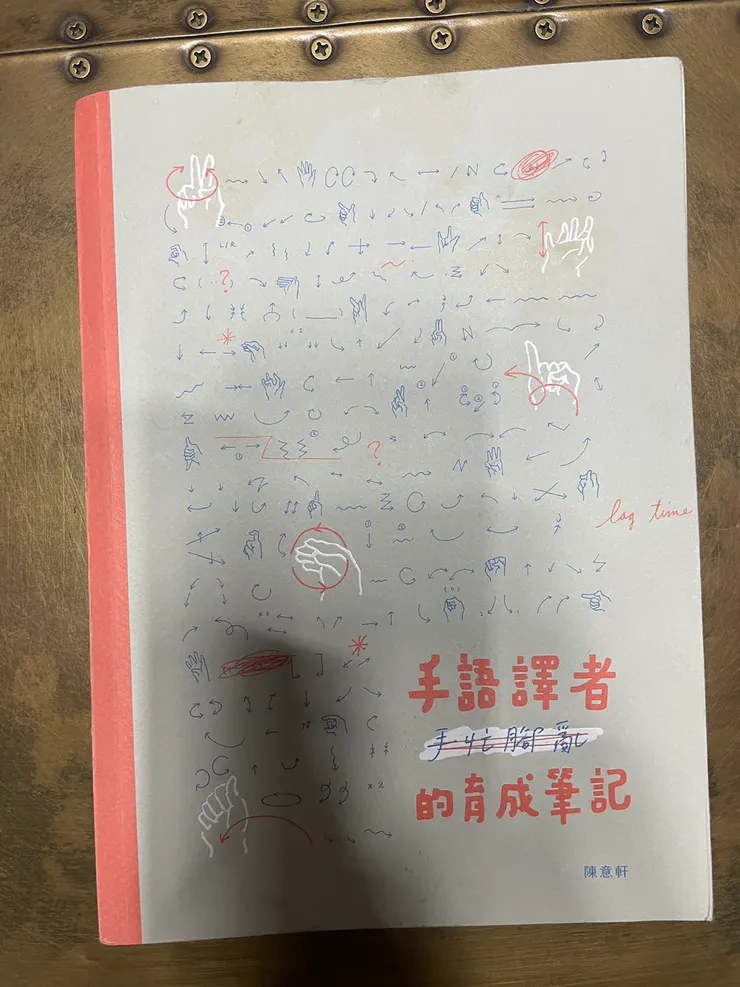 LIR
lag time
手語譯者
手忙腳亂
的育成筆記
x2
陳意軒